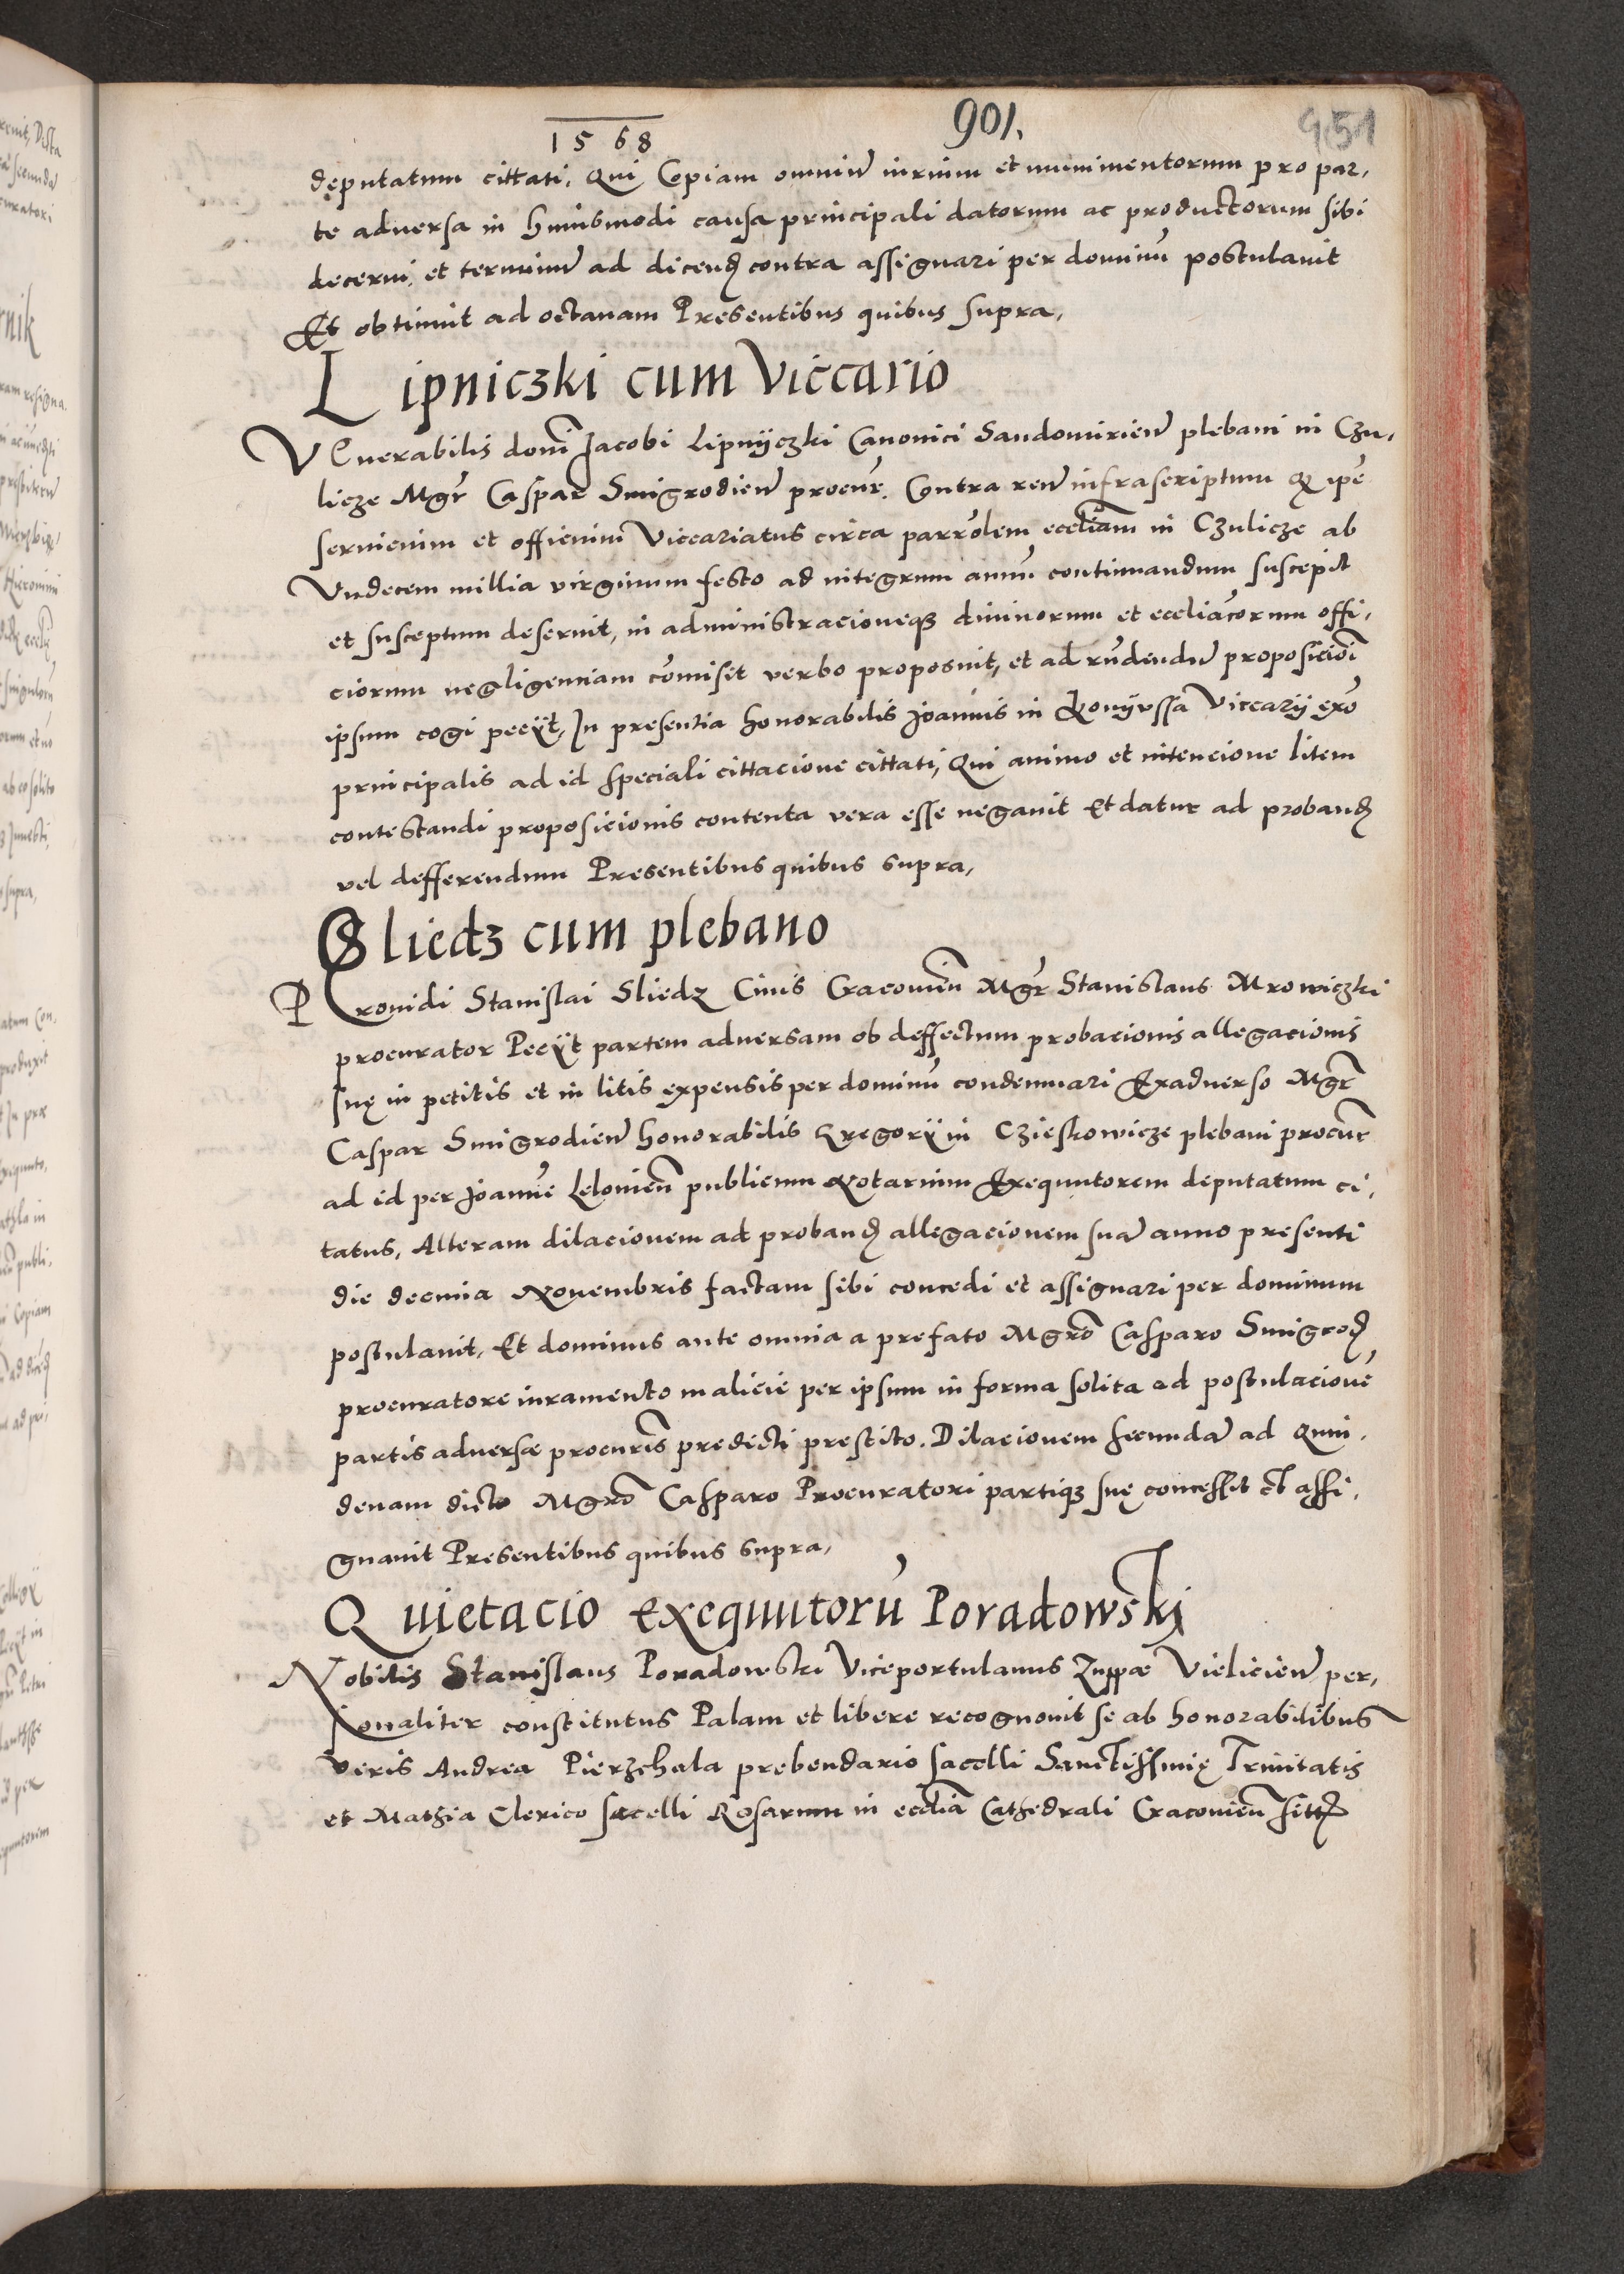 901.
951
1568
deputatum cittati, Qui Copiam omniu iurium et munimentorum pro par,
te aduersa in huiusmodi causa principali datorum ac productorum sibi
decerni, et terminu ad dicend contra assignari per dominu postulauit
Et obtinuit ad octauam Presentibus quibus supra,
Lipniczki cum Viccario
VEnerabilis domi Jacobi Lipnijczki Canonici Sandomirien plebani in Czu,
licze Mgr Caspar Smigrodien procur. Contra reu infrascriptum Q ipe
seruicium et officium Viccariatus circa parrolem eccliam in Czulicze ab
Vndecem millia virginum festo ad integrum annu continuandum suscepit
et susceptum deseruit, in administracioneq diuinorum et eccliacorum offi,
ciorum negligenciam comisit verbo proposuit, et ad rndendu proposicioi
ipsum cogi peciit, In presentia honorabilis Joannis in Konijussa Viccarij exo
principalis ad id speciali cittacione cittati, Qui animo et intencione litem
contestandi proposicionis contenta vera esse negauit Et datur ad proband
vel defferendum Presentibus quibus supra,
Sliedz cum plebano
Prouidi Stanislai Sliedz Ciuis Cracouien Mgr Stanislaus Mrowiczki
procurator Peciit partem aduersam ob deffectum probacionis allegacionis
suę in petitis et in litis expensis per dominu condemnari Exaduerso Mgr
Caspar Smigrodien honorabilis Gregorij in Czieskowicze plebani procur
ad id per Joanne Lelouien publicum Notarium Exequutorem deputatum ci,
tatus, Alteram dilacionem ad proband allegacionem sua anno presenti
die decima Nouembris factam sibi concedi et assignari per dominum
postulauit, Et dominus ante omnia a prefato Mgro Casparo Smigrod
procuratore iuramento malicie per ipsum in forma solita ad postulacione
partis aduersæ procuris predicti prestito. Dilacionem secunda ad Quin,
denam dicto Mgro Casparo Procuratori partiq suę concessit et assi,
gnauit Presentibus quibus supra,
Quietacio Exequutoru Poradowski
Nobilis Stanislaus Poradowski Viceportulanus Zuppæ Vielicien per,
sonaliter constitutus Palam et libere recognouit se ab honorabilibus
veris Andrea Pierzchala prebendario sacelli Sanctissimę Trinitatis
et Mathia Clerico sacelli Rosarum in ecclia Cathedrali Cracouien sitt